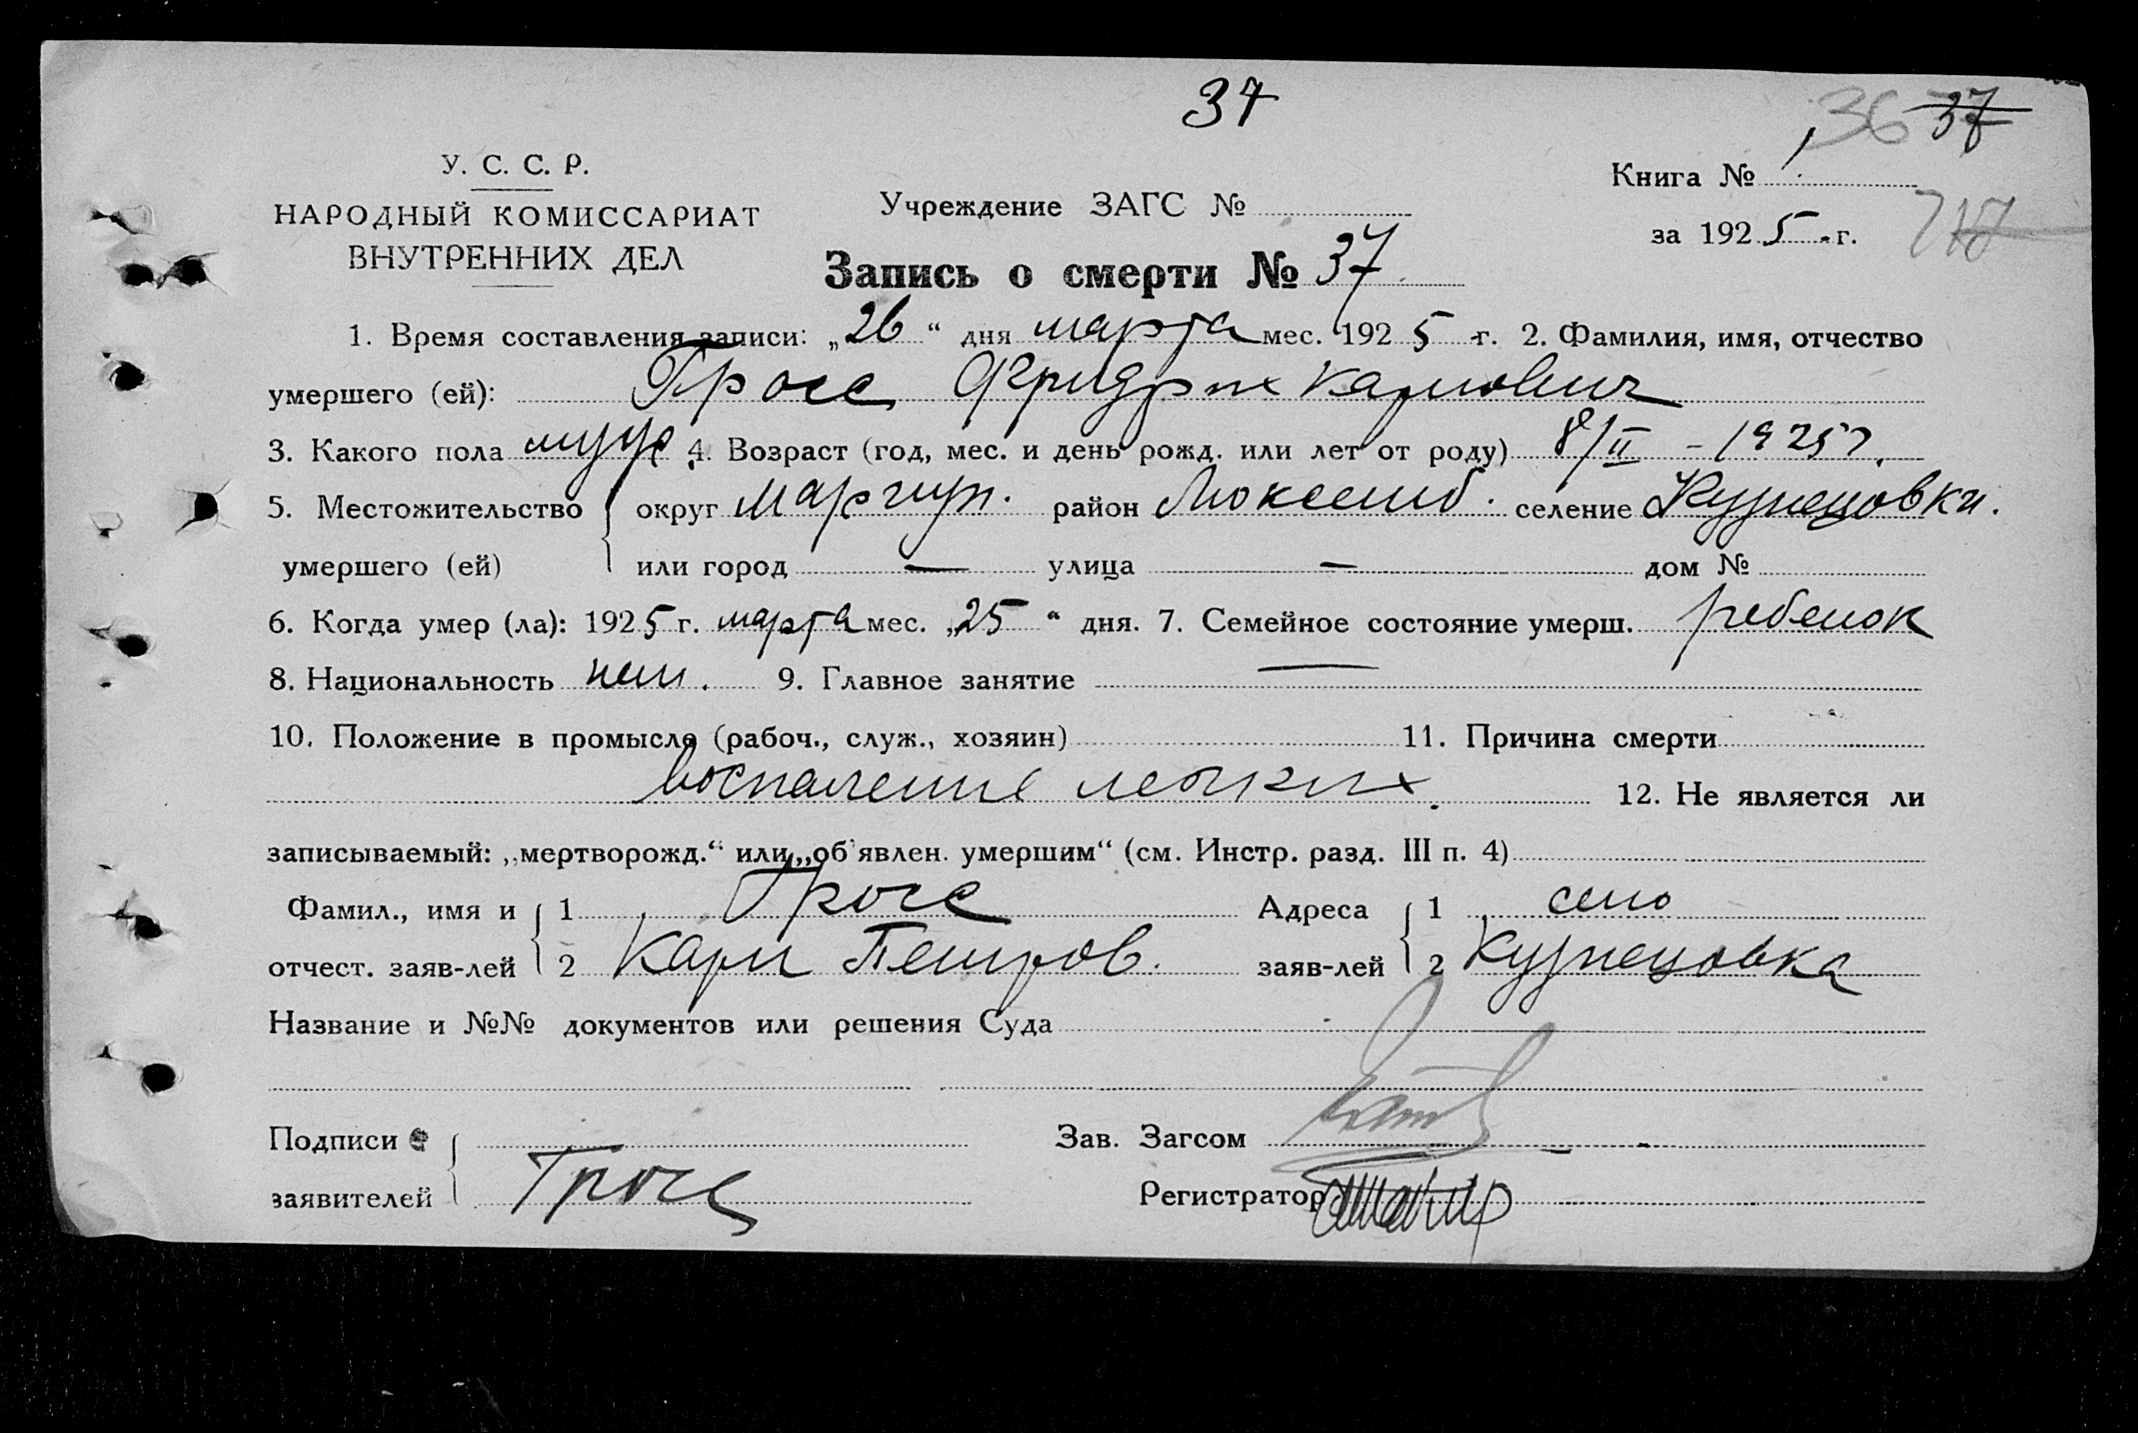 37
36 37
У. С. С. Р.
НАРОДНЫЙ КОМИССАРИАТ
ВНУТРЕННИХ ДЕЛ
Учреждение ЗАГС №
Книга № 1
за 1925 г.
Запись о смерти № 37
1. Время составления записи: „26“ дня марта мес. 1925 г. 2. Фамилия, имя, отчество
умершего (ей): Гросс Фридрих Карлович
3. Какого пола муж. 4. Возраст (год, мес. и день рожд. или лет от роду) 8/II – 1925 г.
5. Местожительство умершего (ей) { округ Мариуп. район Люксемб. селение Кузнецовка.
или город — улица — дом №
6. Когда умер (ла): 1925 г. марта мес. „25“ дня. 7. Семейное состояние умерш. ребенок
8. Национальность нем. 9. Главное занятие —
10. Положение в промысле (рабоч., служ., хозяин) 11. Причина смерти
воспаление легких. 12. Не является ли
записываемый: „мертворожд.“ или „об'явлен. умершим“ (см. Инстр. разд. III п. 4)
Фамил., имя и { 1 Гросс Адреса { 1 село
отчест. заяв-лей 2 Карл Петров. заяв-лей 2 Кузнецовка
Название и №№ документов или решения Суда
Подписи { Зав. Загсом
заявителей Гросс Регистратор